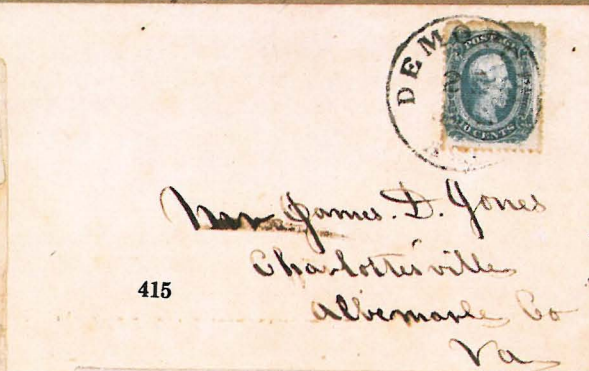 DEMO
POSTAGE
10 CENTS
Mrs. James. D. Jones
Charlottesville
Albemarle Co
Va
415